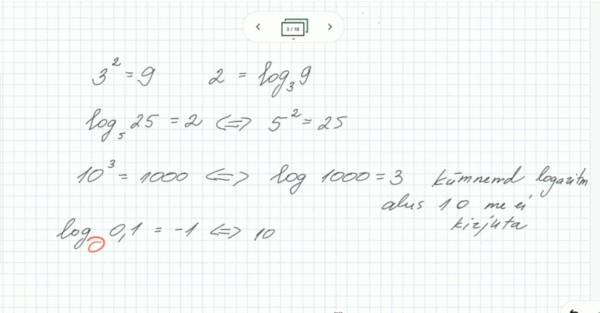 3 / 16
3² = 9 2 = log₃ 9
log₅ 25 = 2 <=> 5² = 25
10³ = 1000 <=> log 1000 = 3 kümnend logaritm
alus 10 me ei
kirjuta
log 0,1 = -1 <=> 10